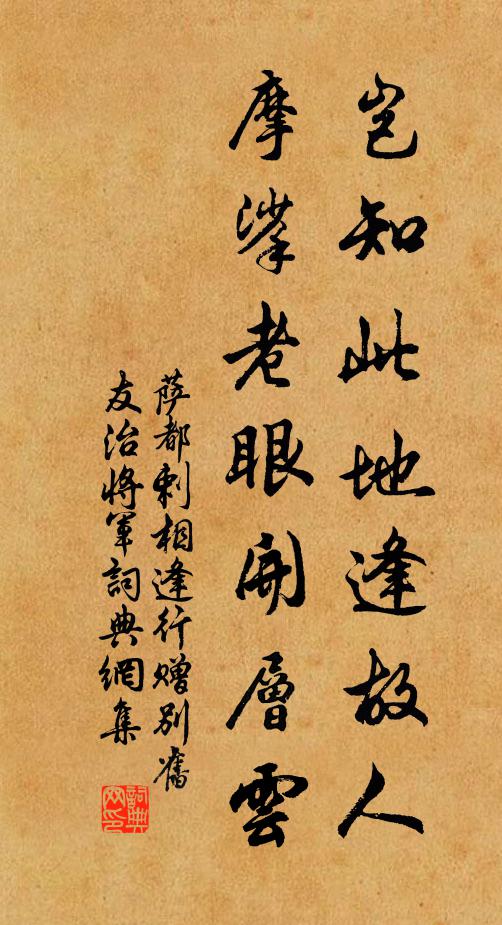 豈知此地逢故人
摩挲老眼開層雲
薩都剌相逢行贈別舊
友治將軍詞典網集
詞典網印